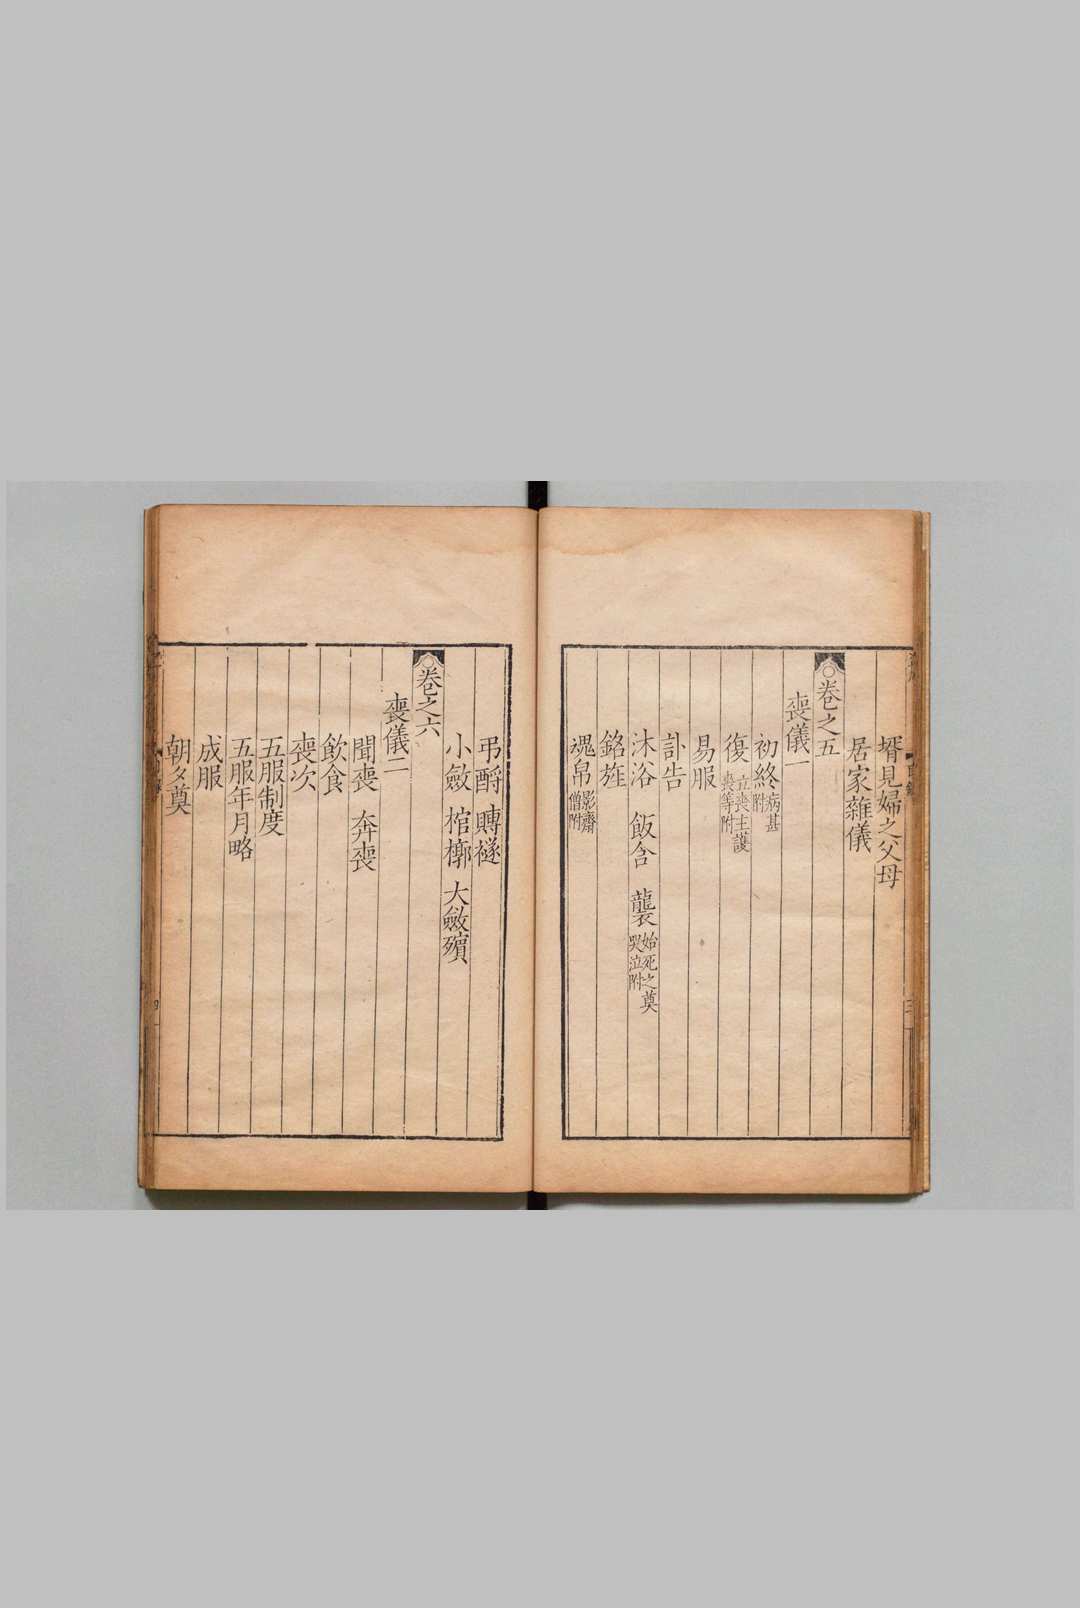 壻見婦之父母
居家雜儀
卷之五
喪儀一
初終 病甚附
復 立喪主護喪等附
易服
訃告
沐浴 飯含 襲 始死之奠哭泣附
銘旌
魂帛 影齋僧附
弔酹 賻襚
小斂 棺槨 大斂殯
卷之六
喪儀二
聞喪 奔喪
飲食
喪次
五服制度
五服年月略
成服
朝夕奠